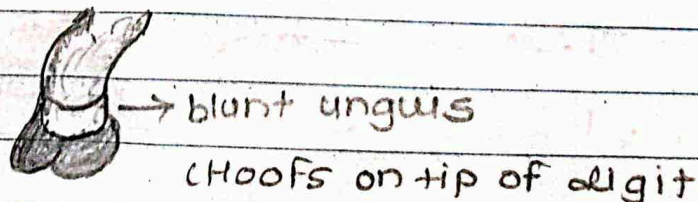 → blunt unguis
(Hoofs on tip of digit